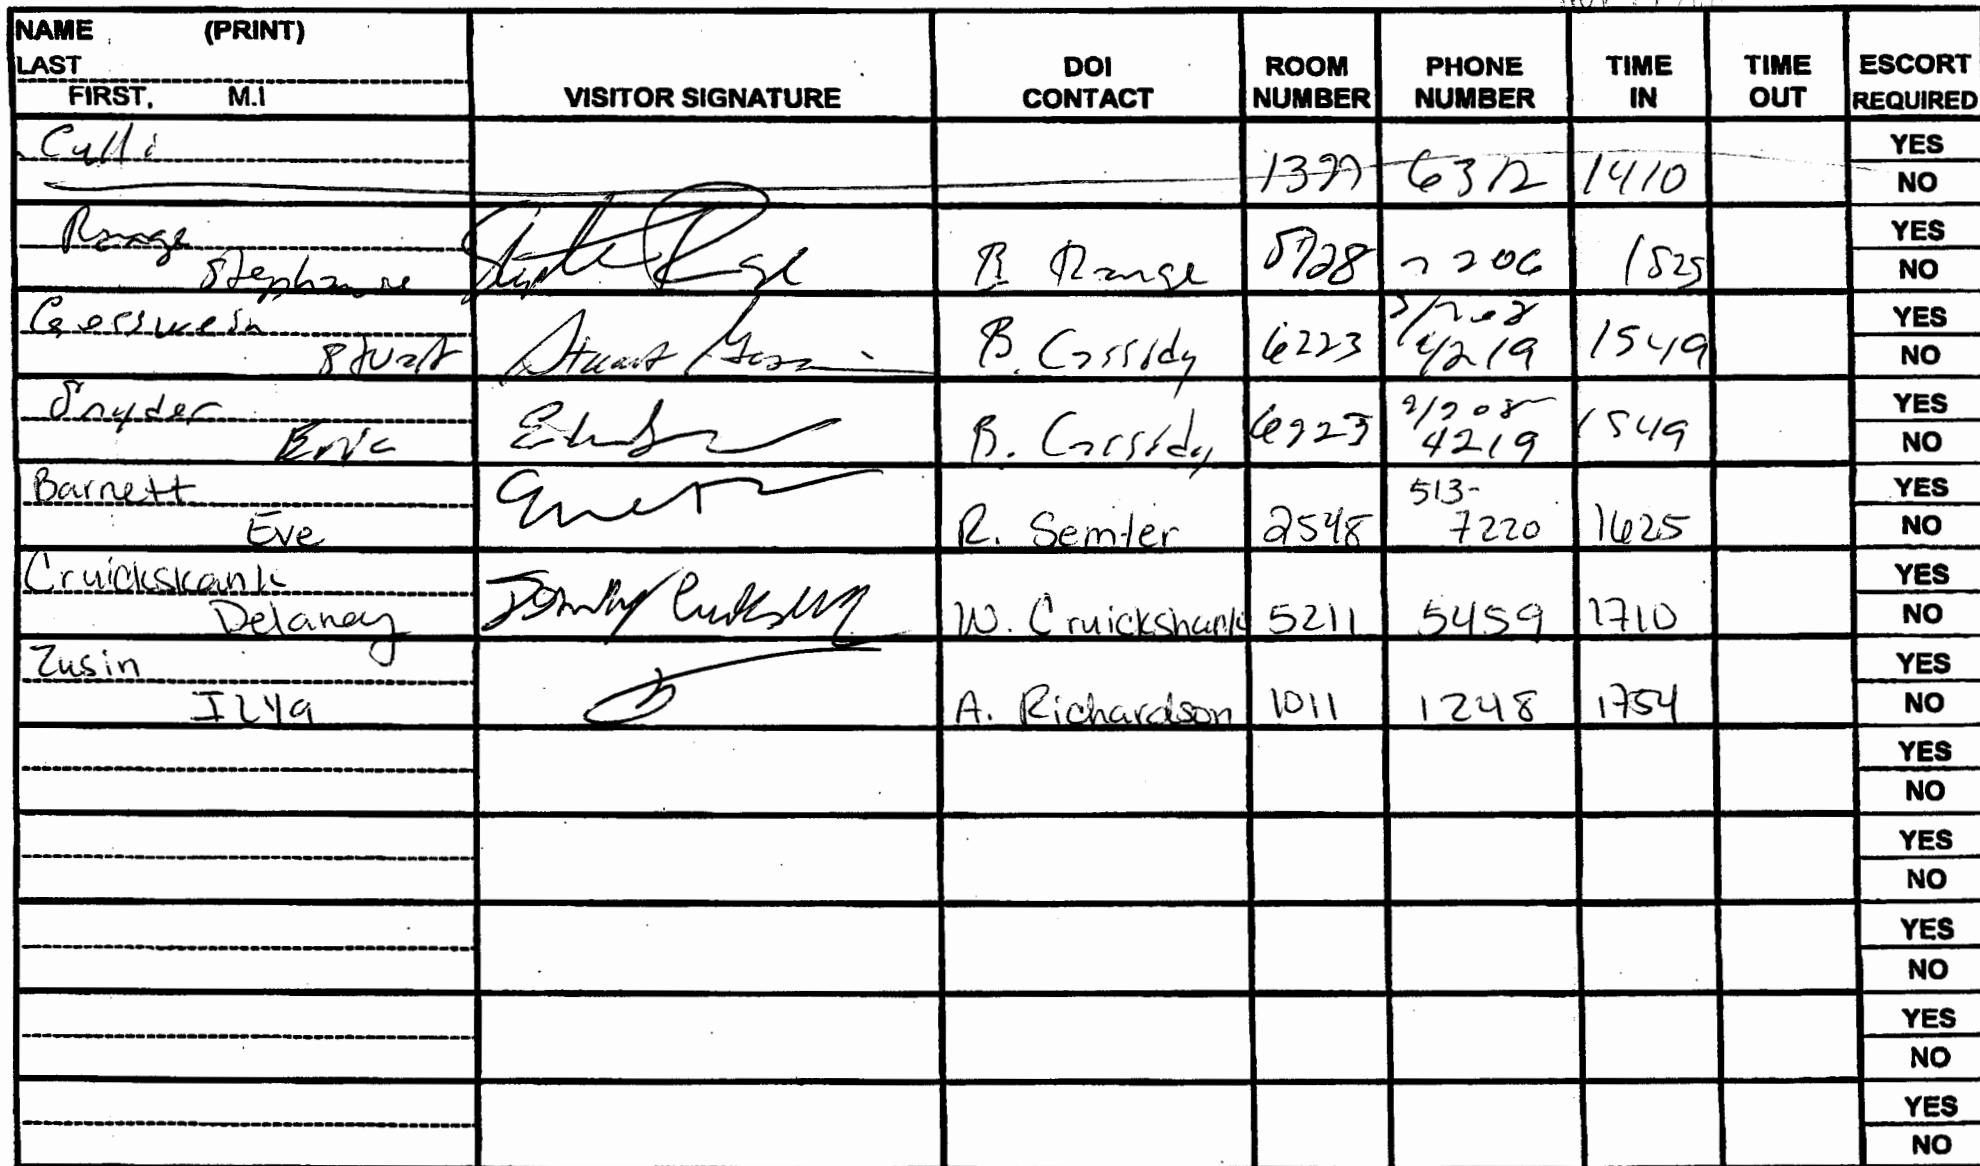 NAME (PRINT)
LAST
FIRST, M.I
VISITOR SIGNATURE
DOI CONTACT
ROOM NUMBER
PHONE NUMBER
TIME IN
TIME OUT
ESCORT REQUIRED
1410
YES
NO
Range
Stephanie B. Range 5728 7206 1525
YES
NO
Stuart B. Cassidy 6223 4219 1549
YES
NO
Snyder
Eric B. Cassidy 6223 4219 1549
YES
NO
Barnett 513-
Eve R. Semler 2548 7220 1625
YES
NO
Cruickskank
Delaney W. Cruickshank 5211 5459 1710
YES
NO
Zusin
ILYa A. Richardson 1011 1248 1754
YES
NO
YES
NO
YES
NO
YES
NO
YES
NO
YES
NO